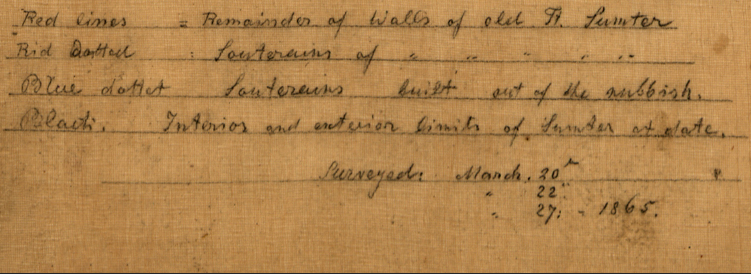 Red lines = Remainder of Walls of old Ft. Sumter
Rid Dotted : Souterains of " " " " "
Blue dottet Souterains built out of the rubbish.
Black. Interior and exterior limits of Sumter at date.
Surveyed: March. 20"
" 22"
" 27: " 1865.